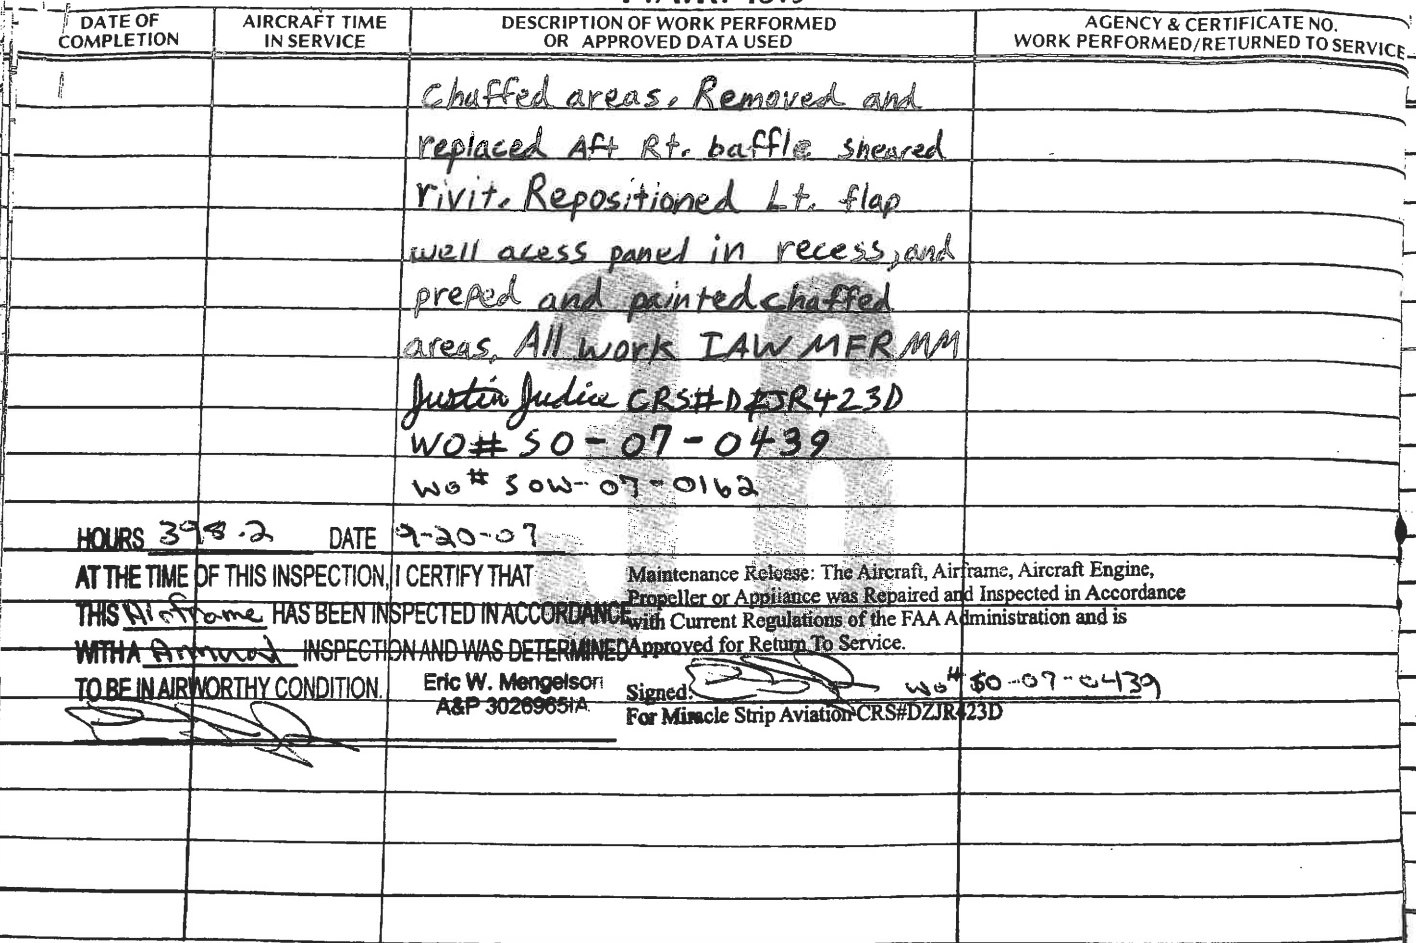 DATE OF COMPLETION
AIRCRAFT TIME IN SERVICE
DESCRIPTION OF WORK PERFORMED OR APPROVED DATA USED
AGENCY & CERTIFICATE NO. WORK PERFORMED/RETURNED TO SERVICE
Chaffed areas. Removed and
replaced Aft Rt. baffle sheared
rivit. Repositioned Lt. flap
well acess panel in recess, and
preped and painted chaffed
areas. All work IAW MFR MM
Justin Judice CRS#DZJR423D
WO# SO-07-0439
WO# SOW-07-0162
HOURS 398.2 DATE 9-20-07
AT THE TIME OF THIS INSPECTION, I CERTIFY THAT
THIS Airframe HAS BEEN INSPECTED IN ACCORDANCE
WITH A Annual INSPECTION AND WAS DETERMINED
TO BE IN AIRWORTHY CONDITION.
Eric W. Mengelson
A&P 3026965IA
Maintenance Release: The Aircraft, Airframe, Aircraft Engine,
Propeller or Appliance was Repaired and Inspected in Accordance
with Current Regulations of the FAA Administration and is
Approved for Return To Service.
Signed: WO# SO-07-0439
For Miracle Strip Aviation CRS#DZJR423D